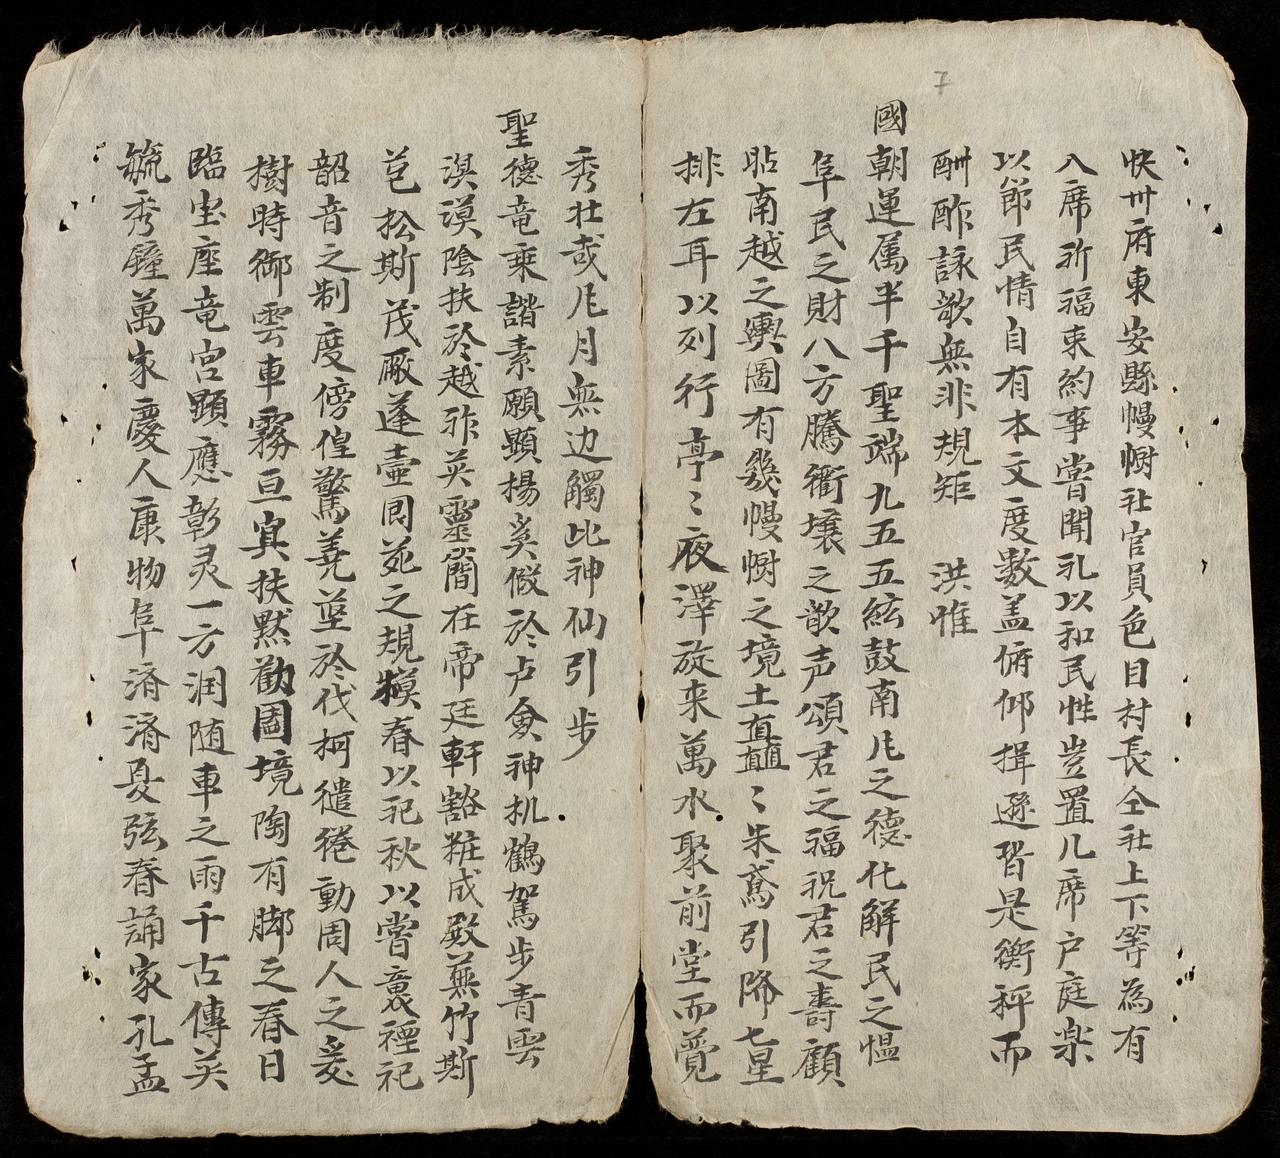 7
快州府東安縣幔幮社官員色目村長仝社上下等為有
入席祈福束約事嘗聞礼以和民性豈置几席户庭楽
以節民情自有本文度數盖俯仰揖遜皆是衡秤而
酬酢詠歌無非規矩 洪惟
國朝運属半千聖端九五五絃鼓南凮之德化解民之愠
阜民之財八方騰衢壤之歌声頌君之福祝君之壽顧
昭南越之輿圖有幾幔幮之境土直矗〻朱鳶引降七星
排左耳以列行亭〻夜澤旋来萬水聚前堂而覺
秀壯哉凮月無边觸比神仙引步
聖德竜乗諧素願顯揚奚假於卢僉神机鶴駕步青雲
溟漠陰扶於越祚英靈簡在帝廷軒豁粧成殿蕪竹斯
苞松斯茂厰蓬壷閬苑之規模春以祀秋以嘗衷禋祀
韶音之制度傍偟驚羮墻於伐柯缱綣動周人之爱
樹時御雲車霧亘寘扶默勸圄境陶有脚之春日
臨宝座竜宫顕應彰灵一方润随車之雨千古傳英
毓秀鐘萬家慶人康物阜済済夏弦春誦家孔孟